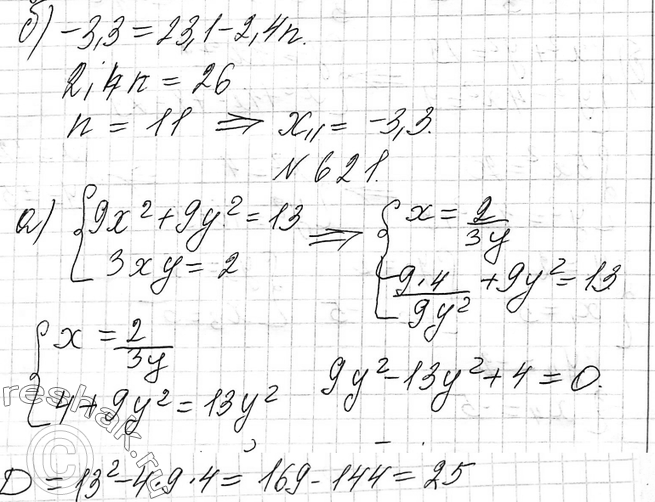 б) -3,3 = 23,1 - 2,4n.
2,4n = 26
n = 11 ⇒ x₁₁ = -3,3.
N 621.
а) { 9x² + 9y² = 13 ⇒ { x = 2/3y
3xy = 2 9·4/9y² + 9y² = 13
{ x = 2/3y
4 + 9y² = 13y² 9y² - 13y² + 4 = 0.
D = 13² - 4·9·4 = 169 - 144 = 25
© reshak.ru